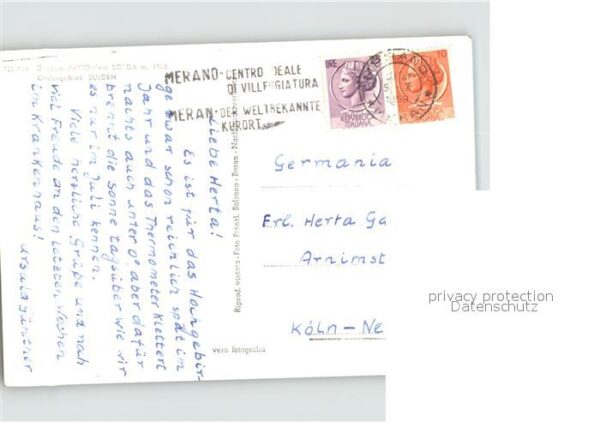 Ortlergebiet: SULDEN
MERANO-CENTRO IDEALE
DI VILLEGGIATURA
MERAN-DER WELTBEKANNTE
KURORT
LIRE
REPVBBLICA
ITALIANA
10
ITALIANA
Liebe Herta!
Es ist für das Hochgebir-
ge zwar schon reichlich spät im
Jahr und das Thermometer klettert
nachts auch unter 0° aber dafür
brennt die Sonne tagsüber wie wir
es nur im Juli kennen.
Viele herzliche Grüße und noch
viel Freude an den letzten Wochen
im Krankenhaus!
Ursula Güntner
Riprod. vietata - Foto Frisanz, Bolzano - Bozen
vera fotografia
Germania
Frl. Herta Ga
Arnimst
Köln-Ne
privacy protection
Datenschutz